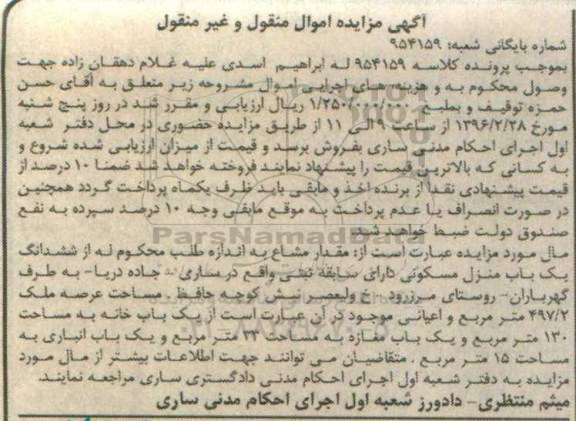 آگهی مزایده اموال منقول و غیر منقول
شماره بایگانی شعبه: ۹۵۴۱۵۹
بموجب پرونده کلاسه ۹۵۴۱۵۹ له ابراهیم اسدی علیه غلام دهقان زاده جهت
وصول محکوم به و هزینه های اجرایی اموال مشروحه زیر متعلق به آقای حسن
حمزه توقیف و بمبلغ ۱/۲۵۰/۰۰۰/۰۰۰ ریال ارزیابی و مقرر شد در روز پنج شنبه
مورخ ۱۳۹۶/۲/۲۸ از ساعت ۹ الی ۱۱ از طریق مزایده حضوری در محل دفتر شعبه
اول اجرای احکام مدنی ساری بفروش برسد و قیمت از میزان ارزیابی شده شروع و
به کسانی که بالاترین قیمت را پیشنهاد نمایند فروخته خواهد شد ضمنا ۱۰ درصد از
قیمت پیشنهادی نقدا از برنده اخذ و مابقی باید ظرف یکماه پرداخت گردد همچنین
در صورت انصراف یا عدم پرداخت به موقع مابقی وجه ۱۰ درصد سپرده به نفع
صندوق دولت ضبط خواهد شد.
ParsNamadData
مال مورد مزایده عبارت است از: مقدار مشاع به اندازه طلب محکوم له از ششدانگ
یک باب منزل مسکونی دارای سابقه ثبتی واقع در ساری - جاده دریا- به طرف
گهرباران- روستای مرزرود - خ ولیعصر نبش کوچه حافظ - مساحت عرصه ملک
۴۹۷/۲ متر مربع و اعیانی موجود در آن عبارت است از یک باب خانه به مساحت
۱۳۰ متر مربع و یک باب مغازه به مساحت ۲۴ متر مربع و یک باب انباری به
مساحت ۱۵ متر مربع . متقاضیان می توانند جهت اطلاعات بیشتر از مال مورد
مزایده به دفتر شعبه اول اجرای احکام مدنی دادگستری ساری مراجعه نمایند.
میثم منتظری- دادورز شعبه اول اجرای احکام مدنی ساری